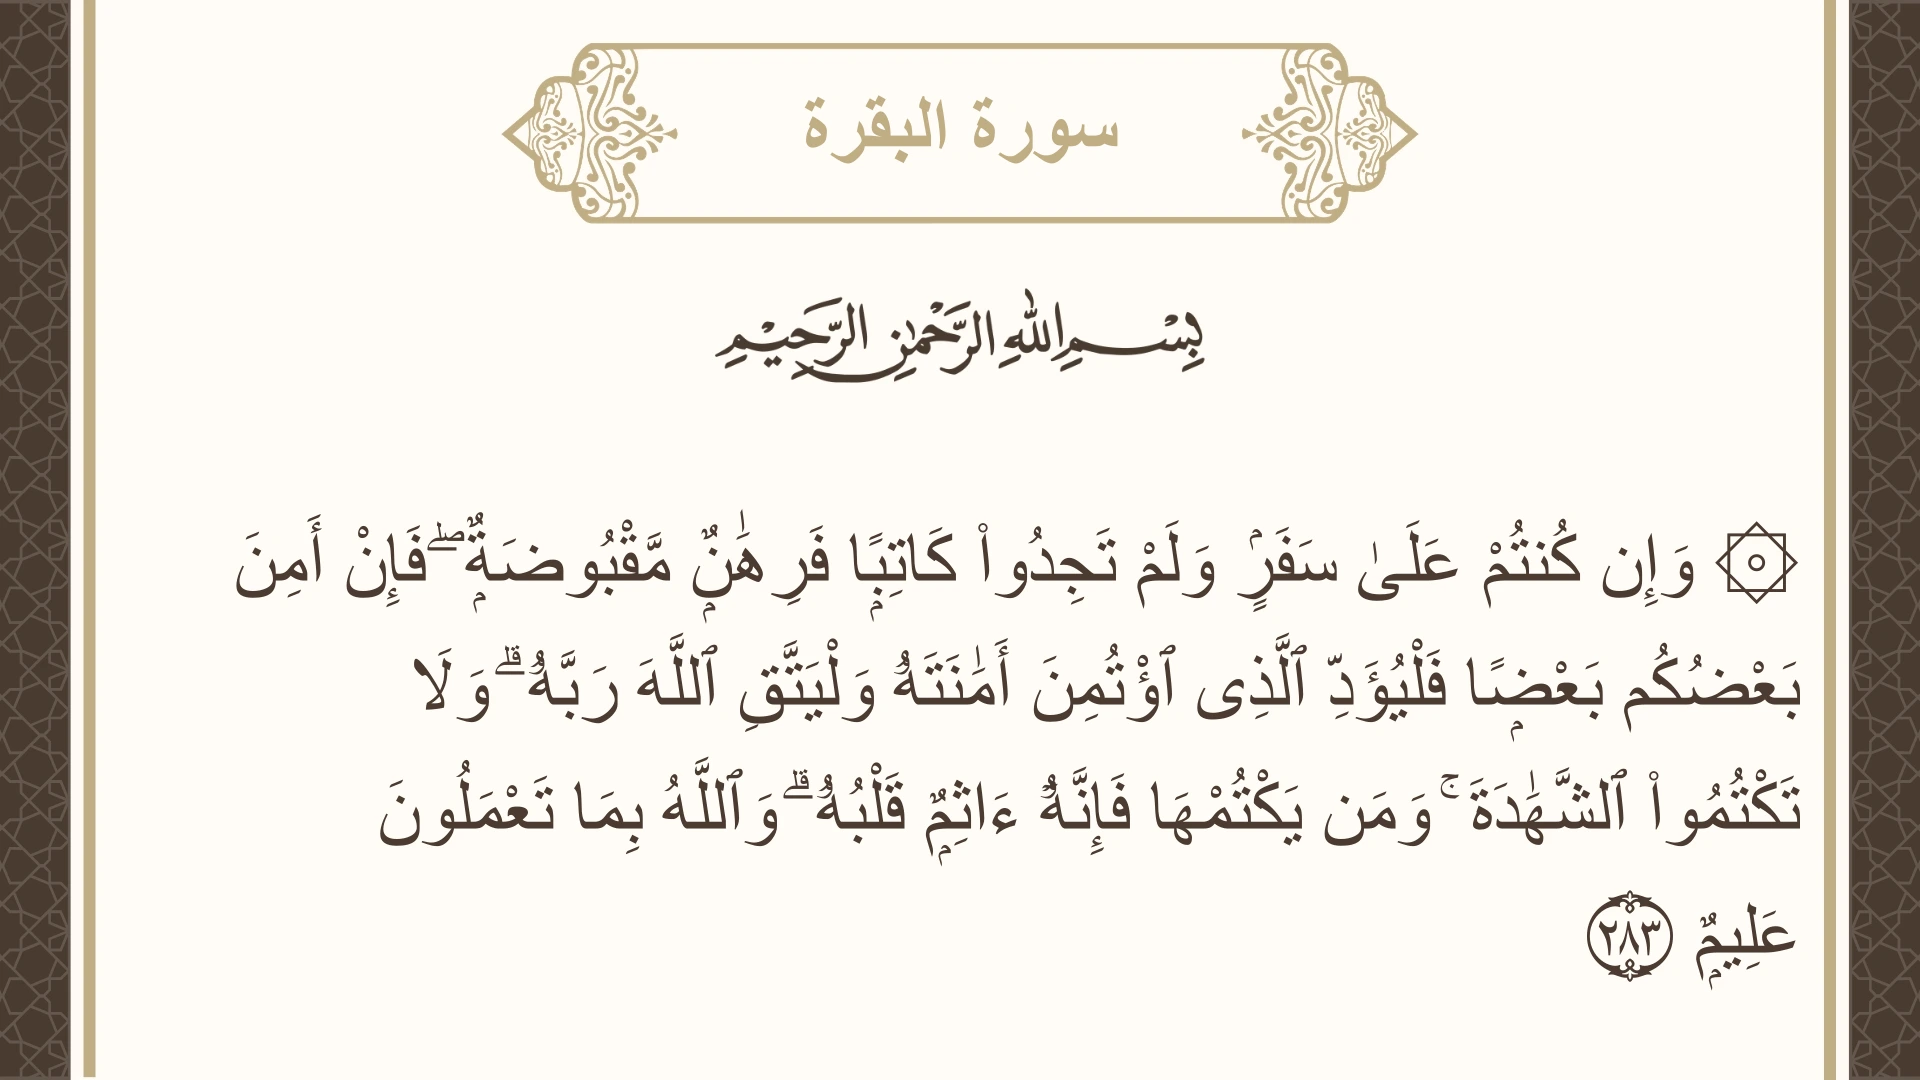 سورة البقرة
بِسْمِ اللهِ الرَّحْمٰنِ الرَّحِيْمِ
۞ وَإِن كُنتُمْ عَلَىٰ سَفَرٍۢ وَلَمْ تَجِدُوا۟ كَاتِبًۭا فَرِهَـٰنٌۭ مَّقْبُوضَةٌۭ ۖ فَإِنْ أَمِنَ
بَعْضُكُم بَعْضًۭا فَلْيُؤَدِّ ٱلَّذِى ٱؤْتُمِنَ أَمَـٰنَتَهُۥ وَلْيَتَّقِ ٱللَّهَ رَبَّهُۥ ۗ وَلَا
تَكْتُمُوا۟ ٱلشَّهَـٰدَةَ ۚ وَمَن يَكْتُمْهَا فَإِنَّهُۥٓ ءَاثِمٌۭ قَلْبُهُۥ ۗ وَٱللَّهُ بِمَا تَعْمَلُونَ
عَلِيمٌۭ ٢٨٣